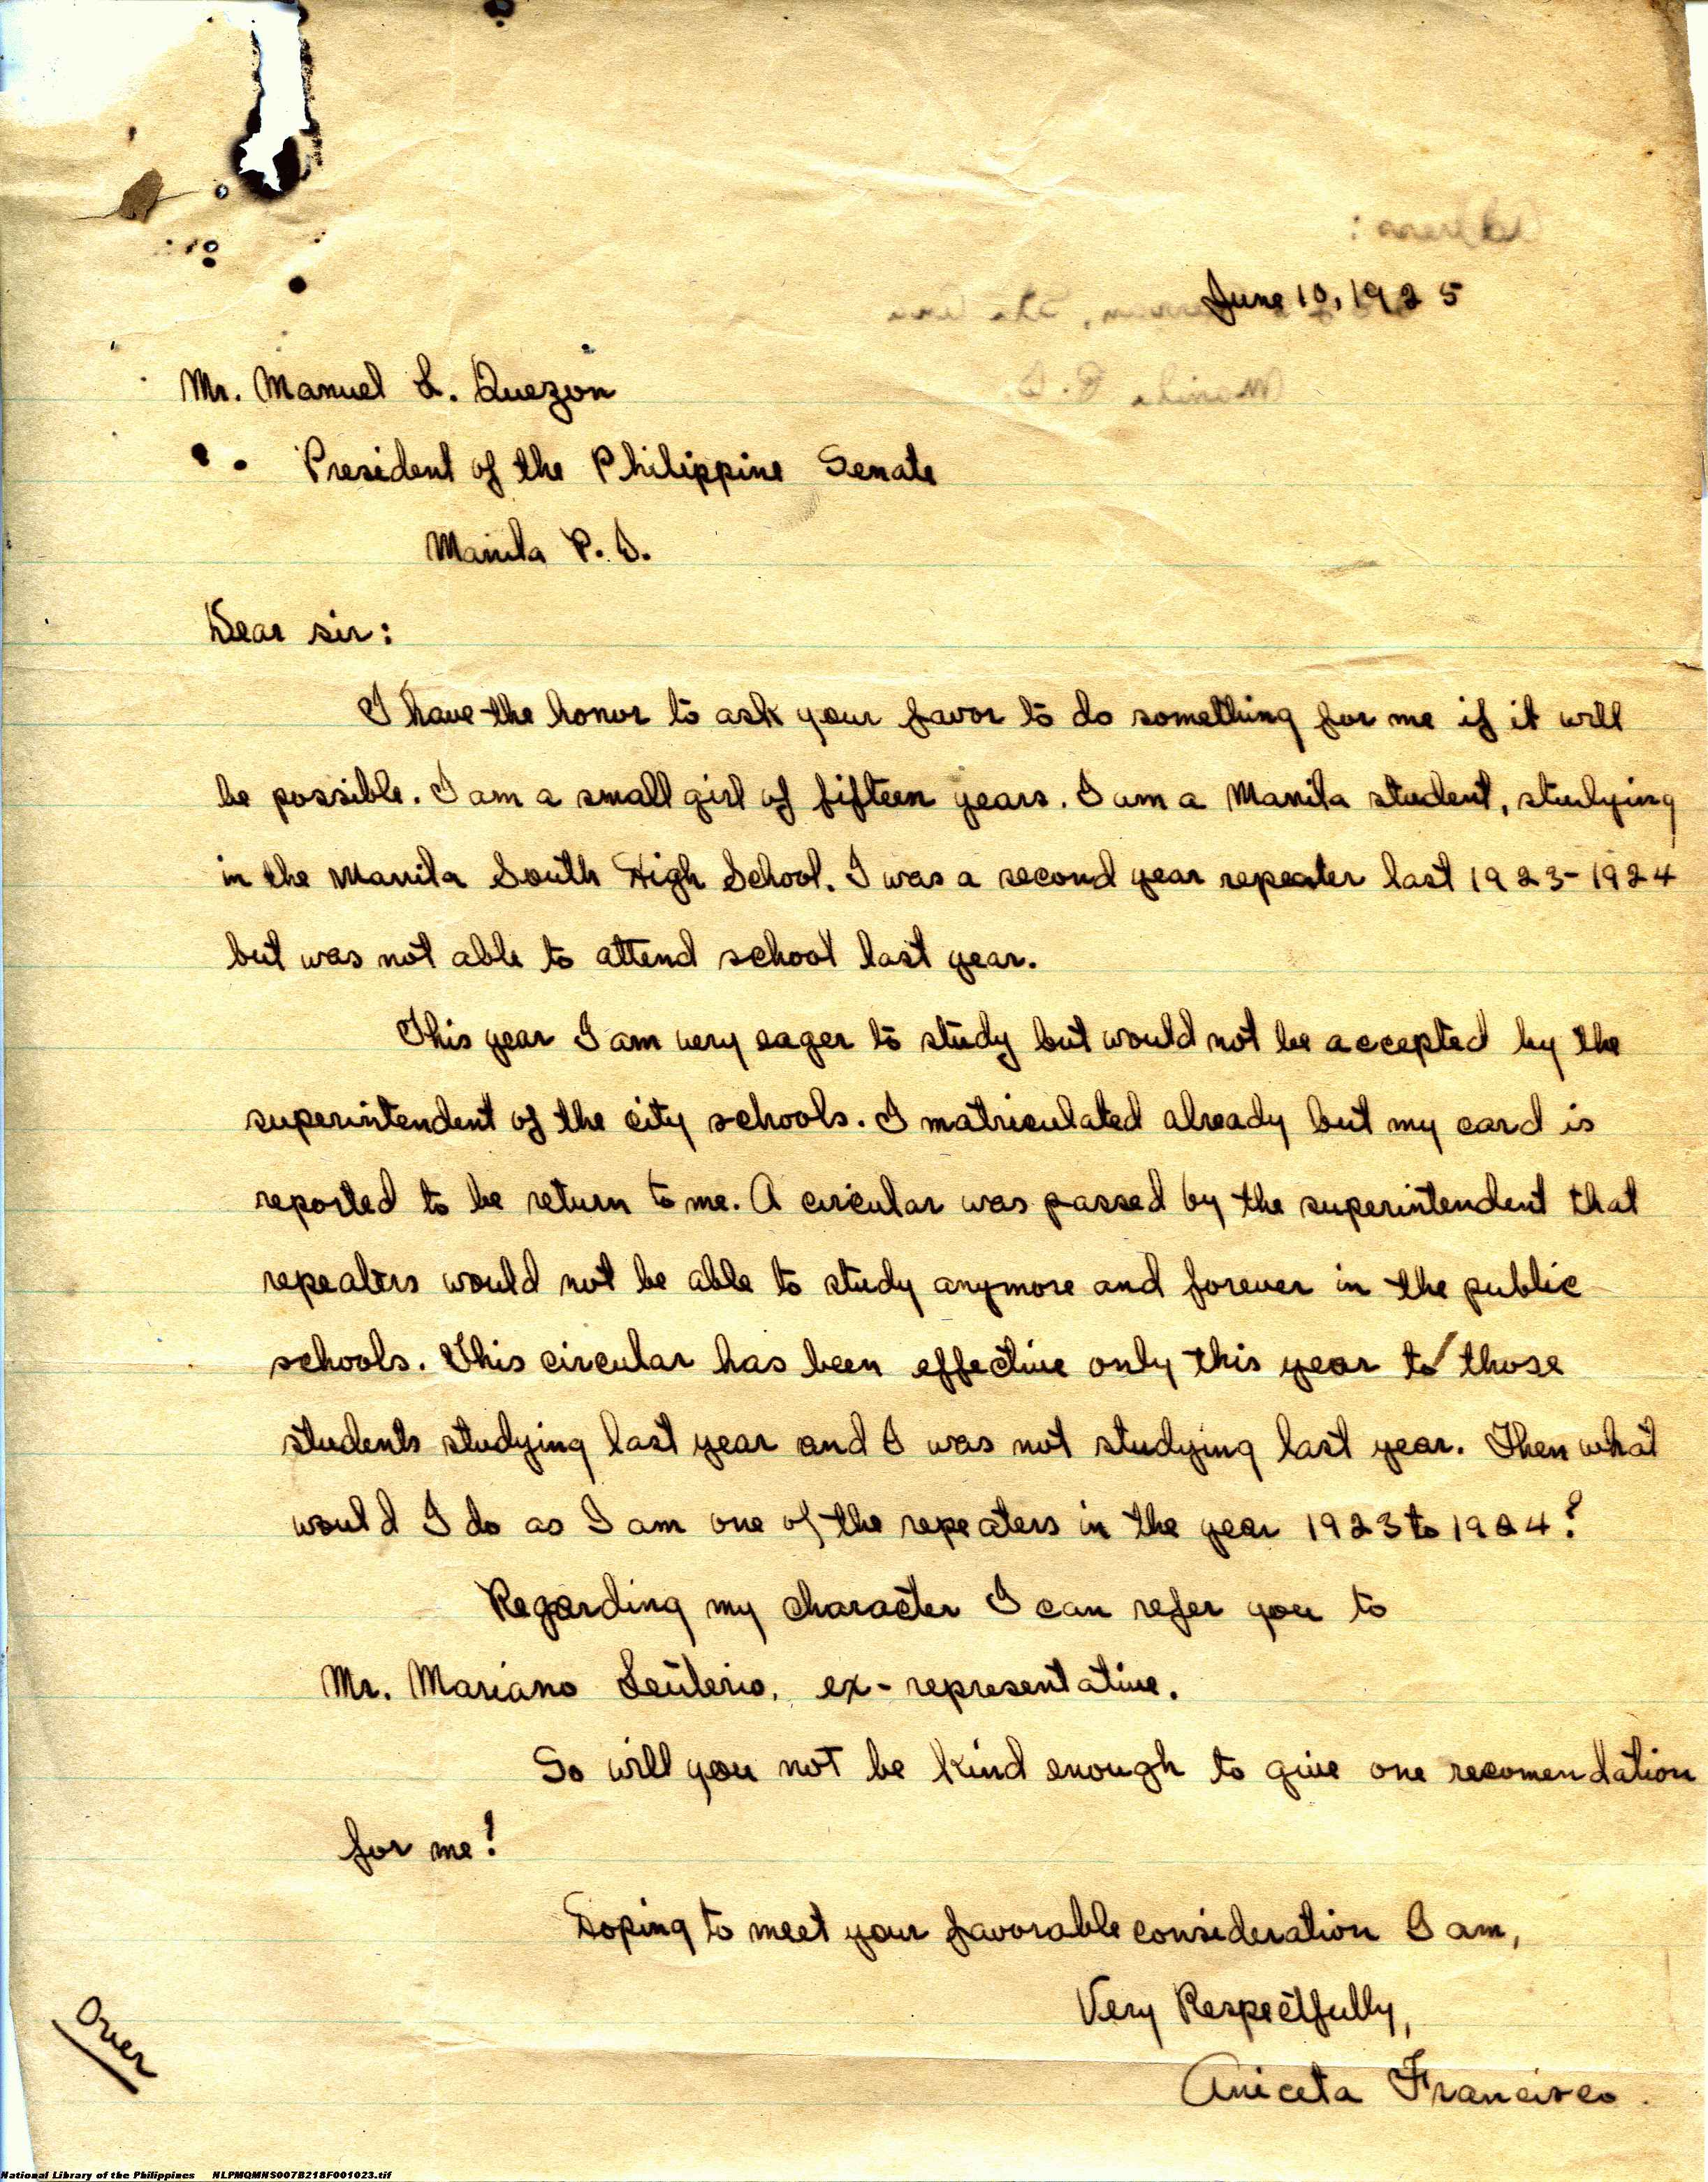 June 10, 1925
Mr. Manuel L. Quezon
President of the Philippine Senate
Manila P. I.
Dear sir:
I have the honor to ask your favor to do something for me if it will
be possible. I am a small girl of fifteen years. I am a Manila student, studying
in the Manila South High School. I was a second year repeater last 1923-1924
but was not able to attend school last year.
This year I am very eager to study but would not be accepted by the
superintendent of the city schools. I matriculated already but my card is
reported to be return to me. A circular was passed by the superintendent that
repeaters would not be able to study anymore and forever in the public
schools. This circular has been effective only this year to those
students studying last year and I was not studying last year. Then what
would I do as I am one of the repeaters in the year 1923 to 1924?
Regarding my character I can refer you to
Mr. Mariano Leuterio, ex-representative.
So will you not be kind enough to give one recomendation
for me?
Hoping to meet your favorable consideration I am,
Very Respectfully,
Aniceta Francisco.
Over
National Library of the Philippines NLPMQMNS007B218F001023.tif